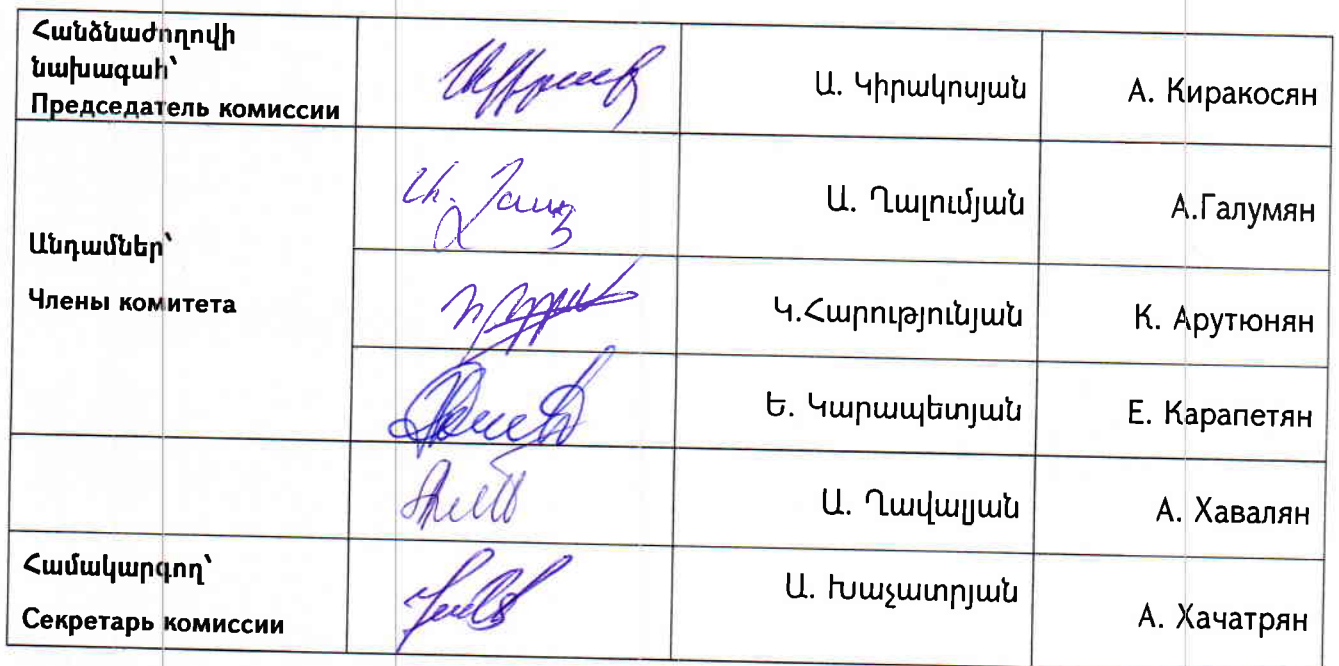 Հանձնաժողովի
նախագահ՝
Председатель комиссии
Ա. Կիրակոսյան
А. Киракосян
Ա. Ղալումյան
А.Галумян
Անդամներ՝
Члены комитета
Կ.Հարությունյան
К. Арутюнян
Ե. Կարապետյան
Е. Карапетян
Ա. Ղավալյան
А. Хавалян
Համակարգող՝
Секретарь комиссии
Ա. Խաչատրյան
А. Хачатрян